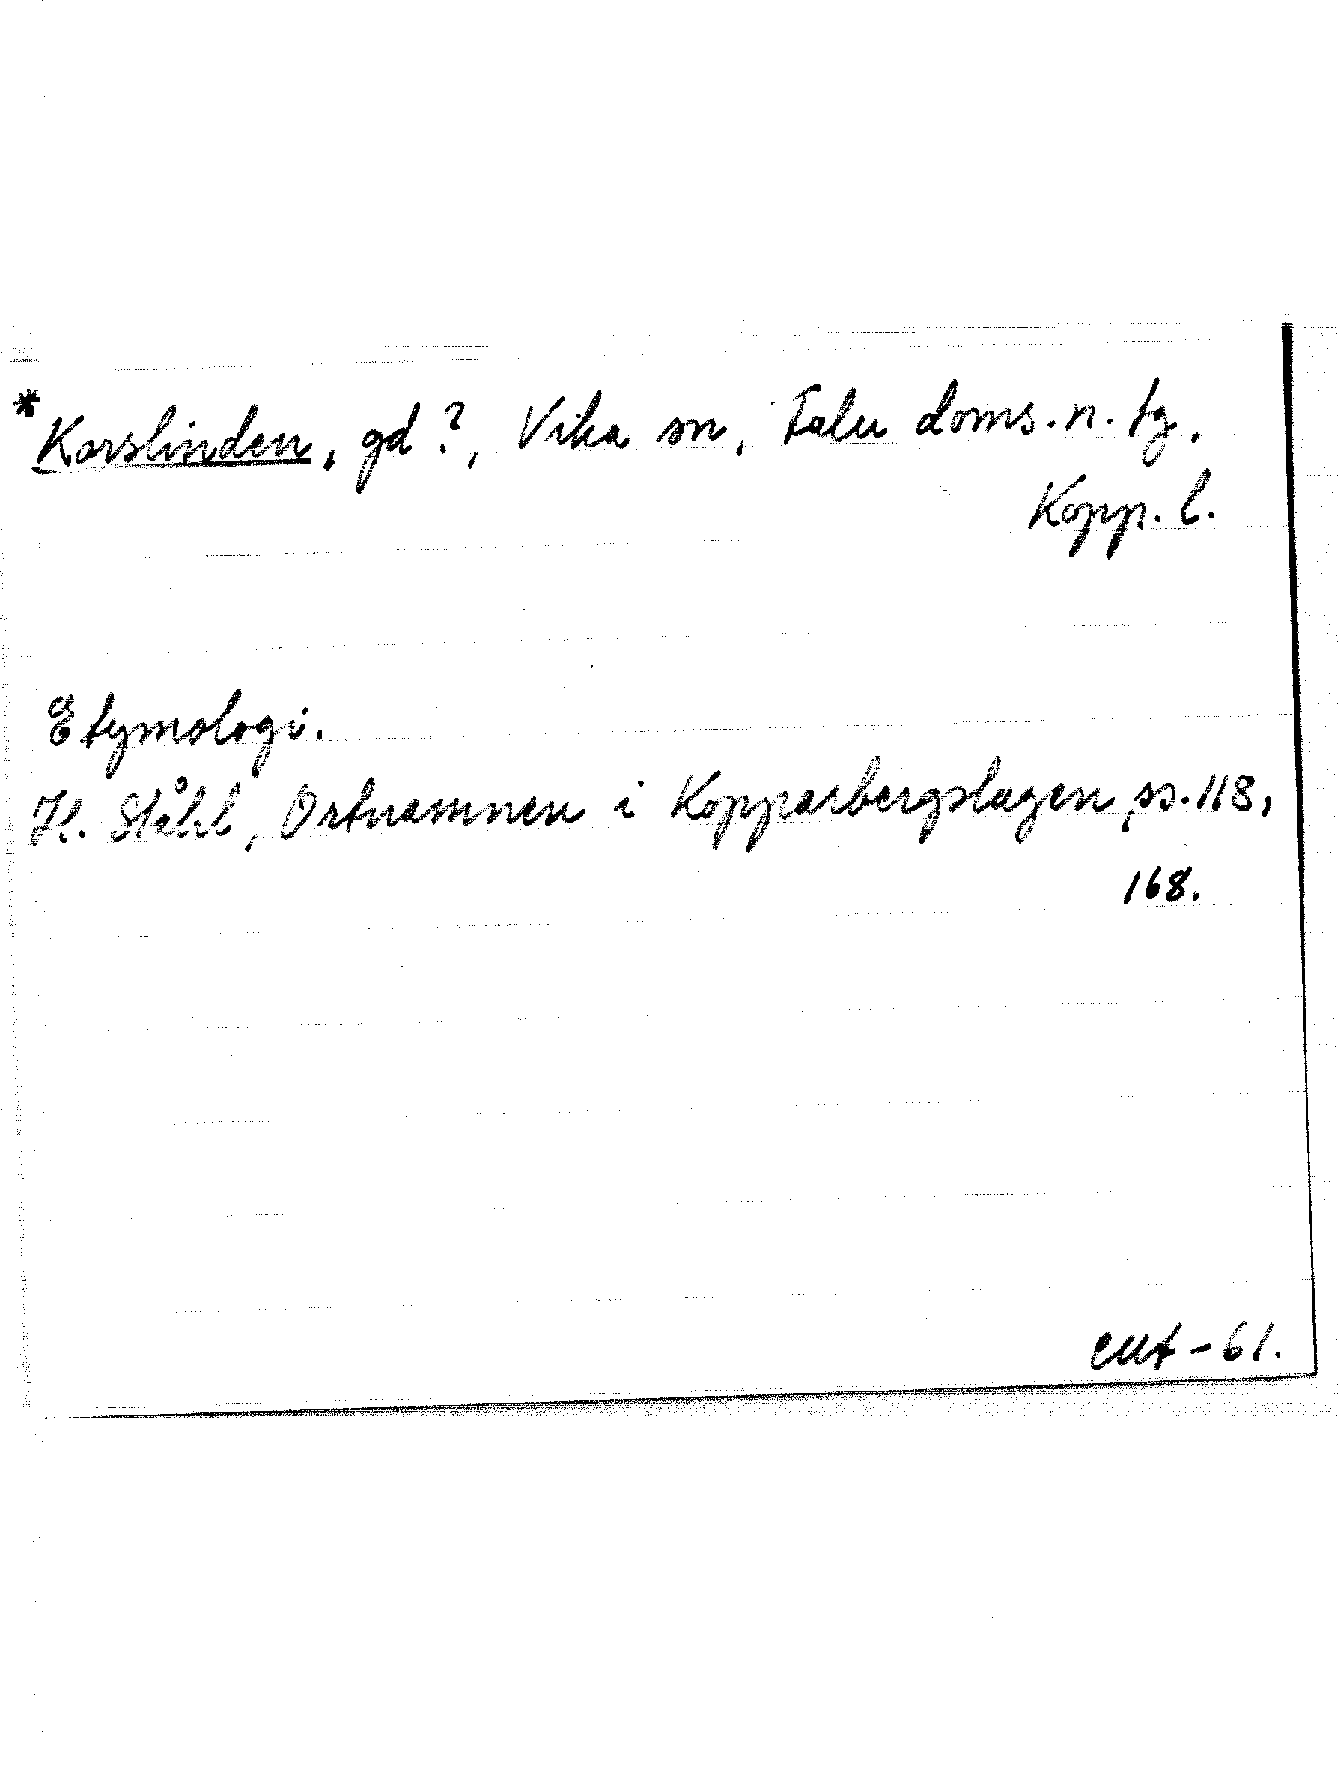 *Korslinden, gd?, Vika sn, Falu doms.n. tg,
Kopp. l.
Etymologi.
H. Ståhl, Ortnamnen i Kopparbergslagen, ss. 118,
168.
EMt-61.